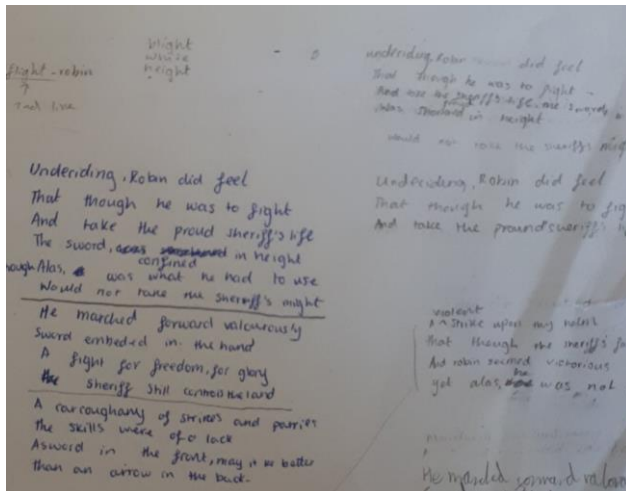 blight
white
height
flight - robin
2nd line
Underiding, Robin did feel
That though he was to fight
And take the proud sheriff's life
The sword, confined in height
though Alas, was what he had to use
Would not take the sheriff's might
He marched forward valourously
Sword embeded in the hand
A fight for freedom, for glory
sheriff still control the land
A carroughany of strikes and parries
the skills were of a lack
A sword in the front, may it be better
than an arrow in the back.
Underiding, Robin did feel
That though he was to fight
And take the sheriff's life, the sword
was in height
would not take the sheriff's might
Underiding, Robin did feel
That though he was to fig
And take the pround sheriff's
violent
A strike upon my
That though the sheriff's
And robin seemed victorious
yet alas, he was not
He marched forward